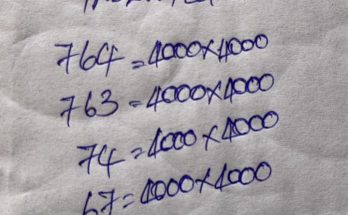 764 = 4000 x 4000
763 = 4000 x 4000
74 = 4000 x 4000
67 = 4000 x 4000